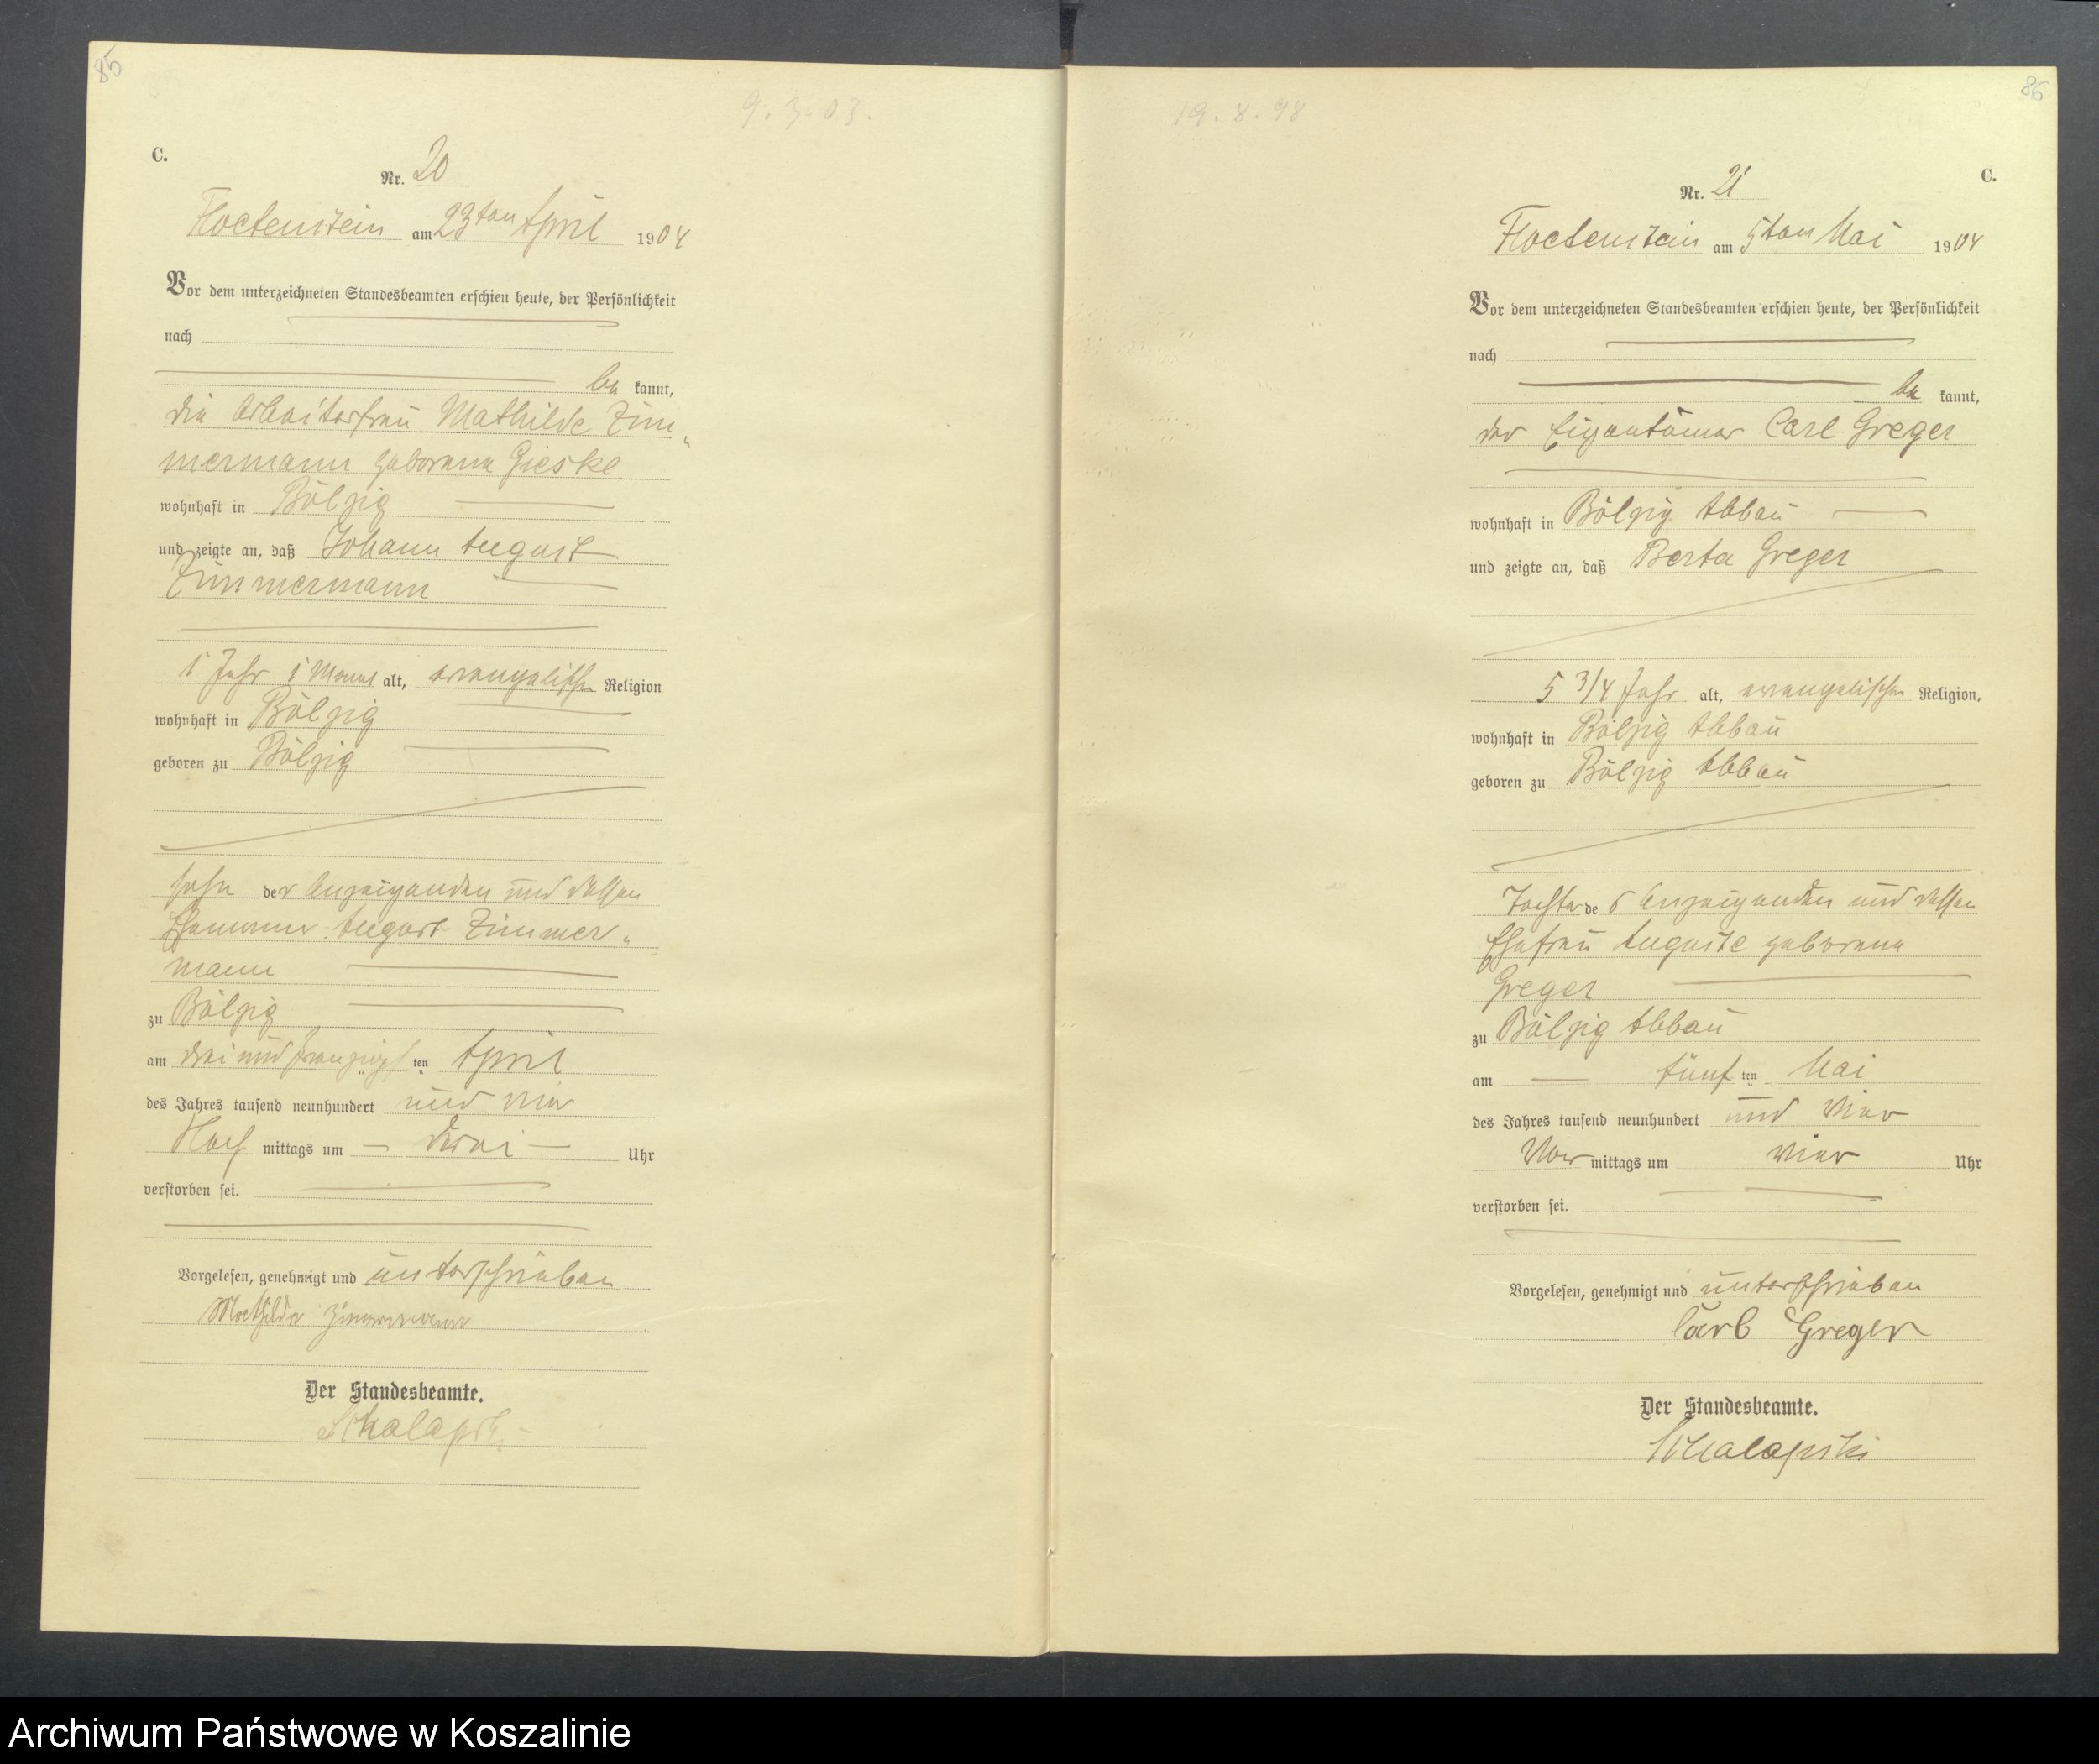 85
9.3.03.
C.
Nr. 20
Floetenstein am 23ten April 1904
Vor dem unterzeichneten Standesbeamten erschien heute, der Persönlichkeit
nach
be kannt,
die Arbeiterfrau Mathilde Zim„
mermann geborene Gieske
wohnhaft in Bölzig
und zeigte an, daß Johann August
Zimmermann
1 Jahr 1 Monat alt, evangelischer Religion
wohnhaft in Bölzig
geboren zu Bölzig
Sohn der Anzeigenden und dessen
Ehemann August Zimmer„
mann
zu Bölzig
am drei und zwanzigsten April
des Jahres tausend neunhundert und vier
Nach mittags um drei Uhr
verstorben sei.
Vorgelesen, genehmigt und unterschrieben
Mathilde Zimmermann
Der Standesbeamte.
86
19.8.98
C.
Nr. 21
Floetenstein am 5ten Mai 1904
Vor dem unterzeichneten Standesbeamten erschien heute, der Persönlichkeit
nach
be kannt,
der Eigentümer Carl Greger
wohnhaft in Bölzig Abbau
und zeigte an, daß Berta Greger
5 3/4 Jahr alt, evangelischer Religion,
wohnhaft in Bölzig Abbau
geboren zu Bölzig Abbau
Tochter des Anzeigenden und dessen
Ehefrau Auguste geborene
Greger
zu Bölzig Abbau
am fünften Mai
des Jahres tausend neunhundert und vier
Vor mittags um vier Uhr
verstorben sei.
Vorgelesen, genehmigt und unterschrieben
Carl Greger
Der Standesbeamte.
Archiwum Państwowe w Koszalinie